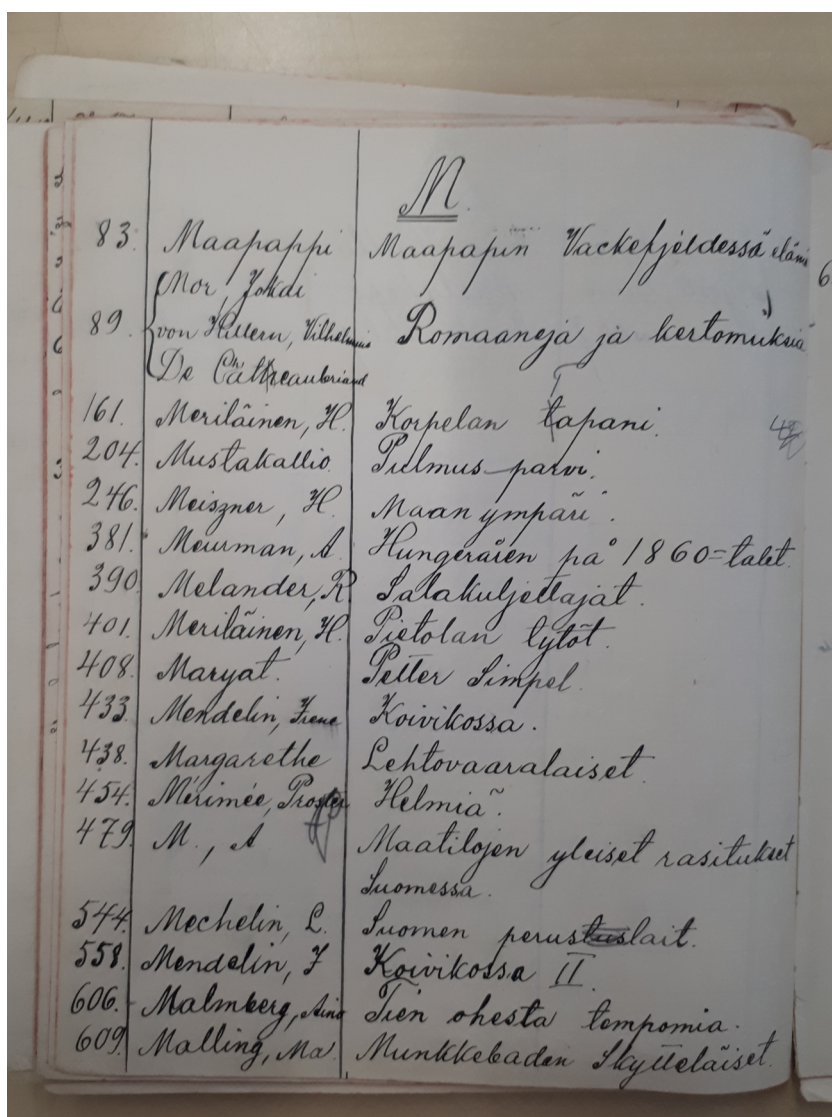 M.
83. Maapappi Maapapin Vackefjeldessä elämä
Mor, Jokai
89. von Hillern, Vilhelmine Romaaneja ja kertomuksia
De Chateaubriand
161. Meriläinen, H. Korpelan Tapani.
204. Mustakallio. Pulmus-parvi.
246. Meiszner, H. Maan ympäri.
381. Meurman, A. Hungeråren på 1860=talet.
390. Melander, R Salakuljettajat.
401. Meriläinen, H. Pietolan tytöt.
408. Maryat. Petter Simpel.
433. Mendelin, Irene Koivikossa.
438. Margarethe Lehtovaaralaiset.
454. Mérimée, Prosper Helmiä.
479. M., A Maatilojen yleiset rasitukset
Suomessa.
544. Mechelin, L. Suomen perustuslait.
558. Mendelin, I Koivikossa II.
606. Malmberg, Aino Tien ohesta tempomia.
609. Malling, Ma. Munkkeboden Skytteläiset.